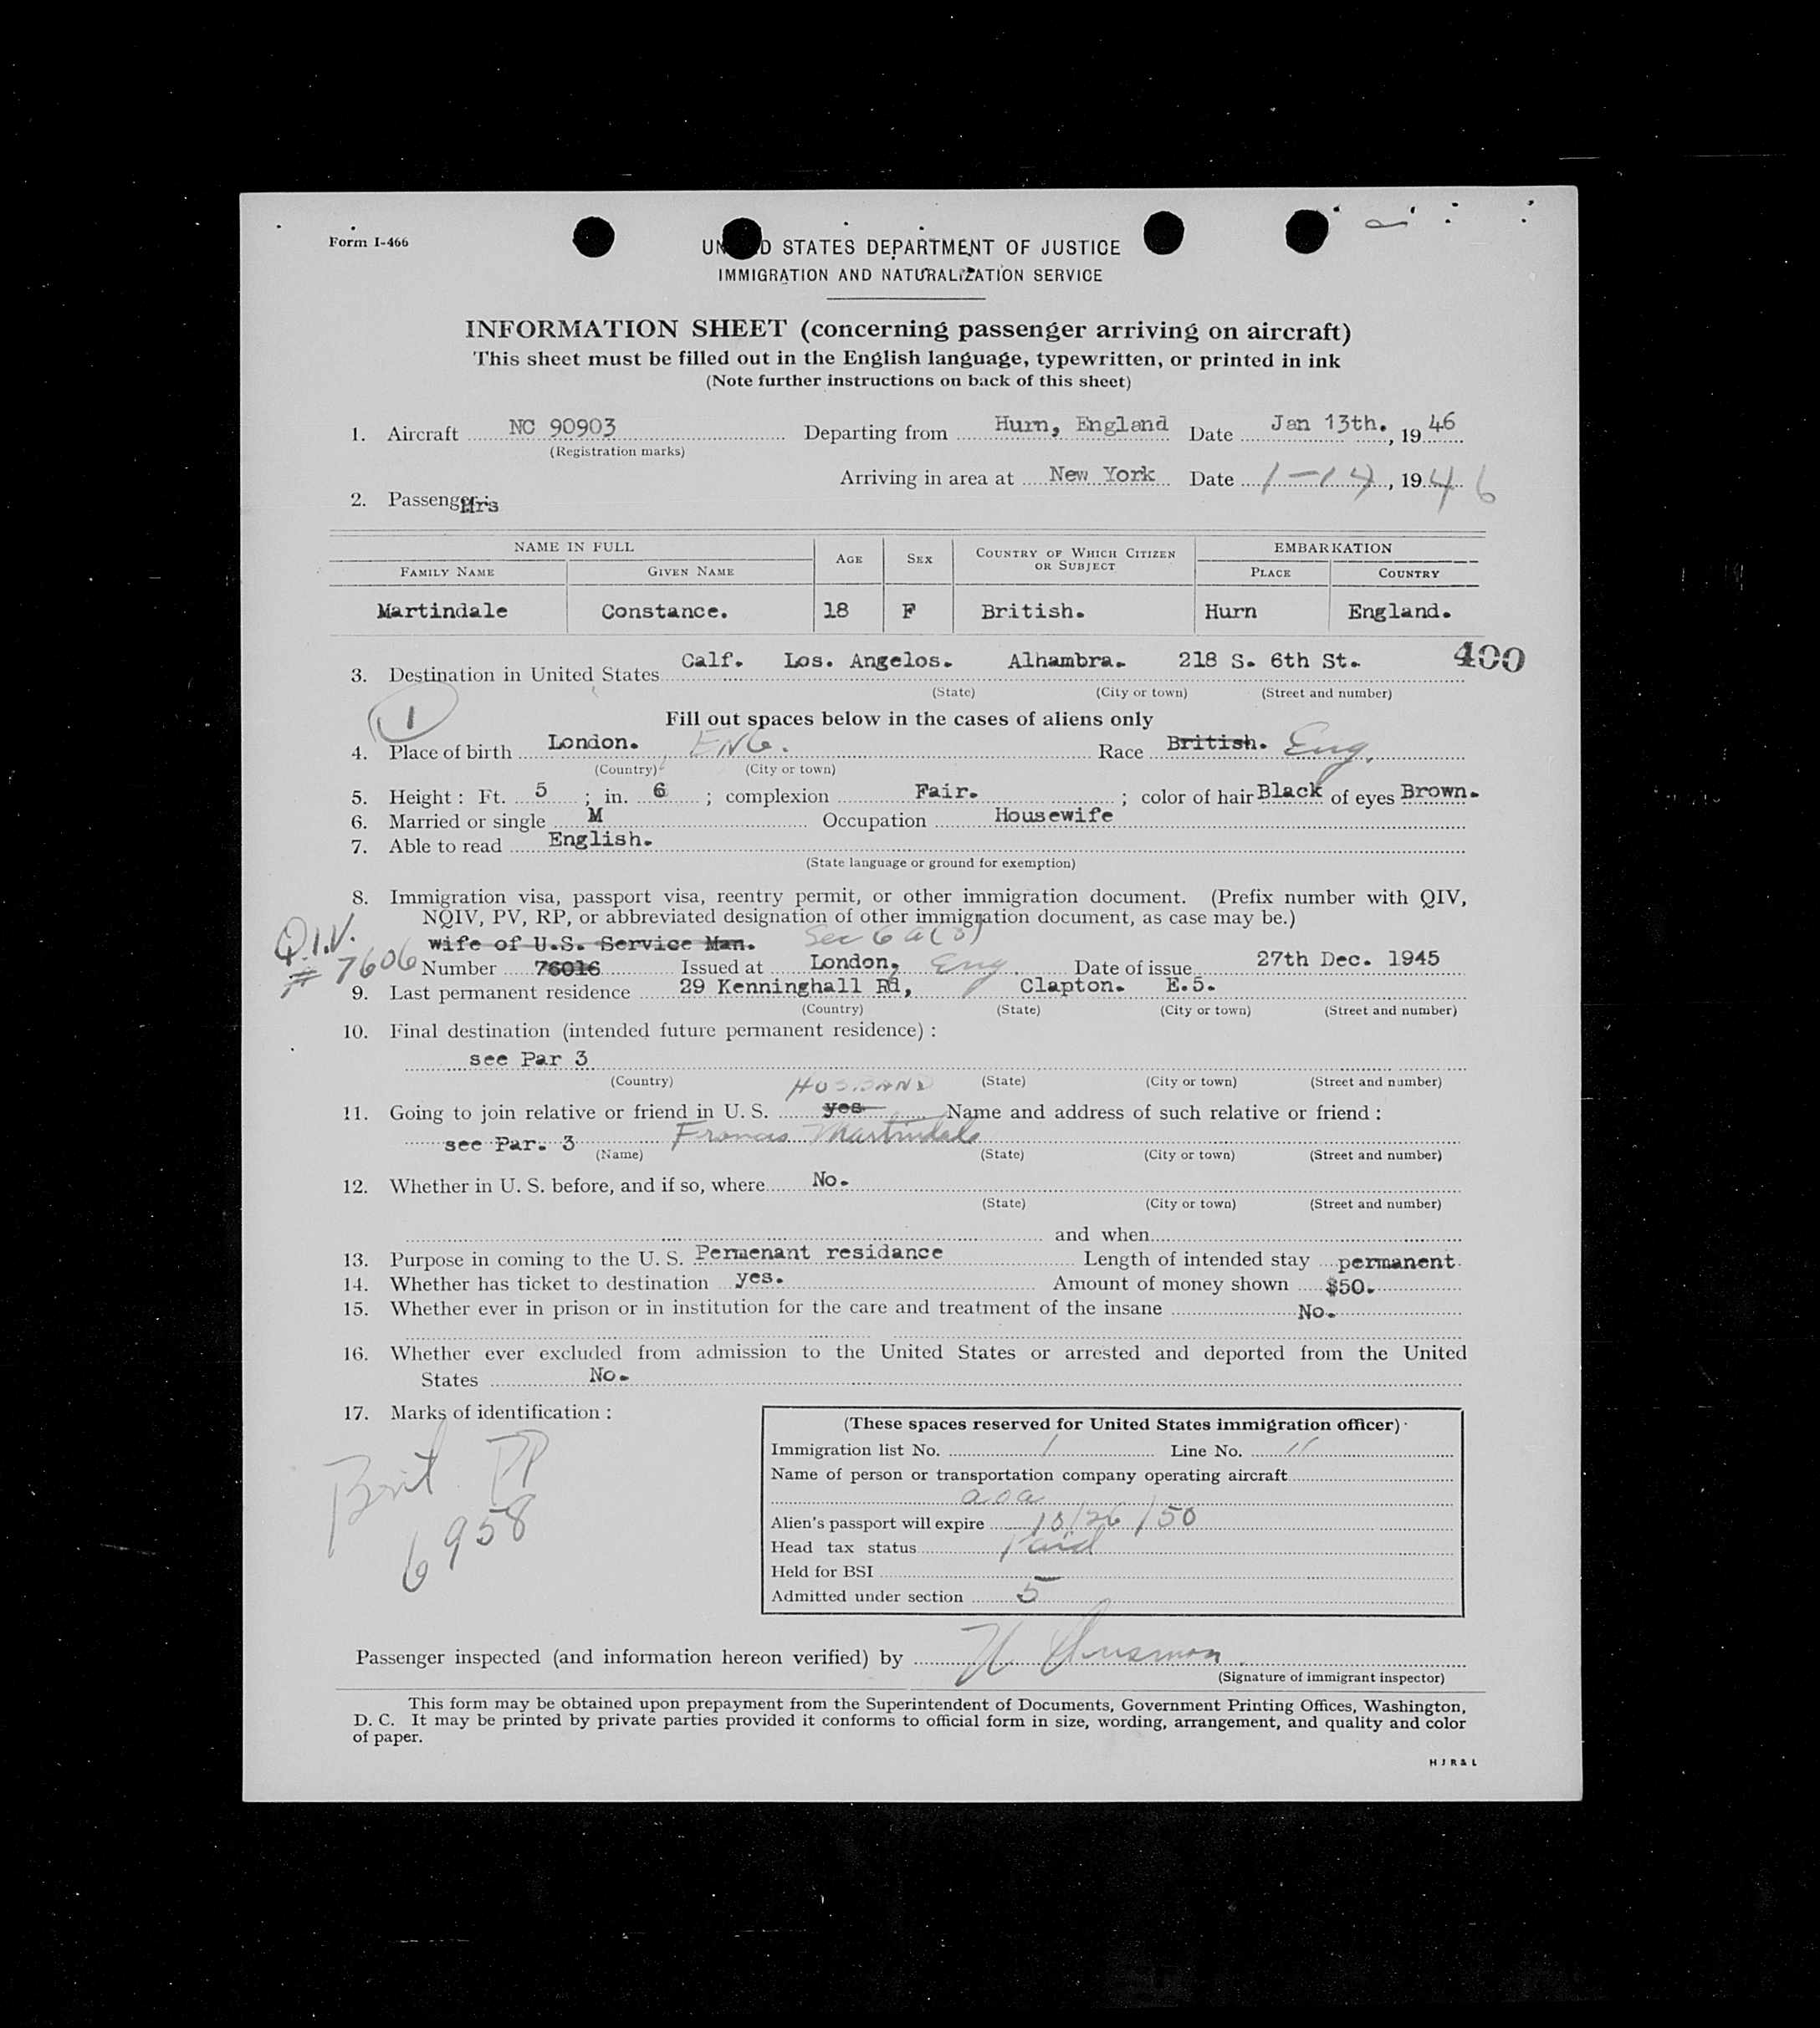 Form I-466
UN D STATES DEPARTMENT OF JUSTICE
IMMIGRATION AND NATURALIZATION SERVICE
INFORMATION SHEET (concerning passenger arriving on aircraft)
This sheet must be filled out in the English language, typewritten, or printed in ink
(Note further instructions on back of this sheet)
1. Aircraft NC 90903 Departing from Hurn, England Date Jan 13th., 1946
(Registration marks)
Arriving in area at New York Date 1-14, 1946
2. Passenger: Mrs
NAME IN FULL AGE SEX COUNTRY OF WHICH CITIZEN OR SUBJECT EMBARKATION
FAMILY NAME GIVEN NAME PLACE COUNTRY
Martindale Constance. 18 F British. Hurn England.
400
3. Destination in United States Calf. Los. Angelos. Alhambra. 218 S. 6th St.
(State) (City or town) (Street and number)
1
Fill out spaces below in the cases of aliens only
4. Place of birth London. ENG. Race British. Eng.
(Country) (City or town)
5. Height: Ft. 5 ; in. 6 ; complexion Fair. ; color of hair Black of eyes Brown.
6. Married or single M Occupation Housewife
7. Able to read English.
(State language or ground for exemption)
8. Immigration visa, passport visa, reentry permit, or other immigration document. (Prefix number with QIV,
NQIV, PV, RP, or abbreviated designation of other immigration document, as case may be.)
Q.I.V. wife of U.S. Service Man. Sec 6 a(3)
# 7606 Number 76016 Issued at London, Eng. Date of issue 27th Dec. 1945
9. Last permanent residence 29 Kenninghall Rd, Clapton. E.5.
(Country) (State) (City or town) (Street and number)
10. Final destination (intended future permanent residence):
see Par 3
(Country) (State) (City or town) (Street and number)
HUSBAND
11. Going to join relative or friend in U. S. yes Name and address of such relative or friend:
see Par. 3 Francis Martindale
(Name) (State) (City or town) (Street and number)
12. Whether in U. S. before, and if so, where No.
(State) (City or town) (Street and number)
and when
13. Purpose in coming to the U. S. Permenant residance Length of intended stay permanent
14. Whether has ticket to destination yes. Amount of money shown $50.
15. Whether ever in prison or in institution for the care and treatment of the insane No.
16. Whether ever excluded from admission to the United States or arrested and deported from the United
States No.
17. Marks of identification:
Brit PP
6958
(These spaces reserved for United States immigration officer)
Immigration list No. 1 Line No. 11
Name of person or transportation company operating aircraft
a o a
Alien's passport will expire 10/26/50
Head tax status Paid
Held for BSI
Admitted under section 5
Passenger inspected (and information hereon verified) by
(Signature of immigrant inspector)
This form may be obtained upon prepayment from the Superintendent of Documents, Government Printing Offices, Washington,
D. C. It may be printed by private parties provided it conforms to official form in size, wording, arrangement, and quality and color
of paper.
H J R & L